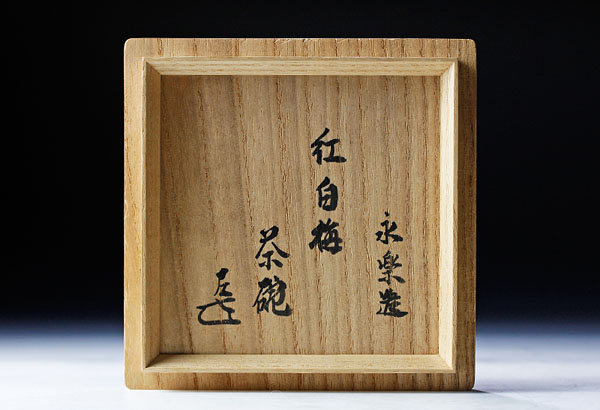 永楽造
紅白梅
茶碗